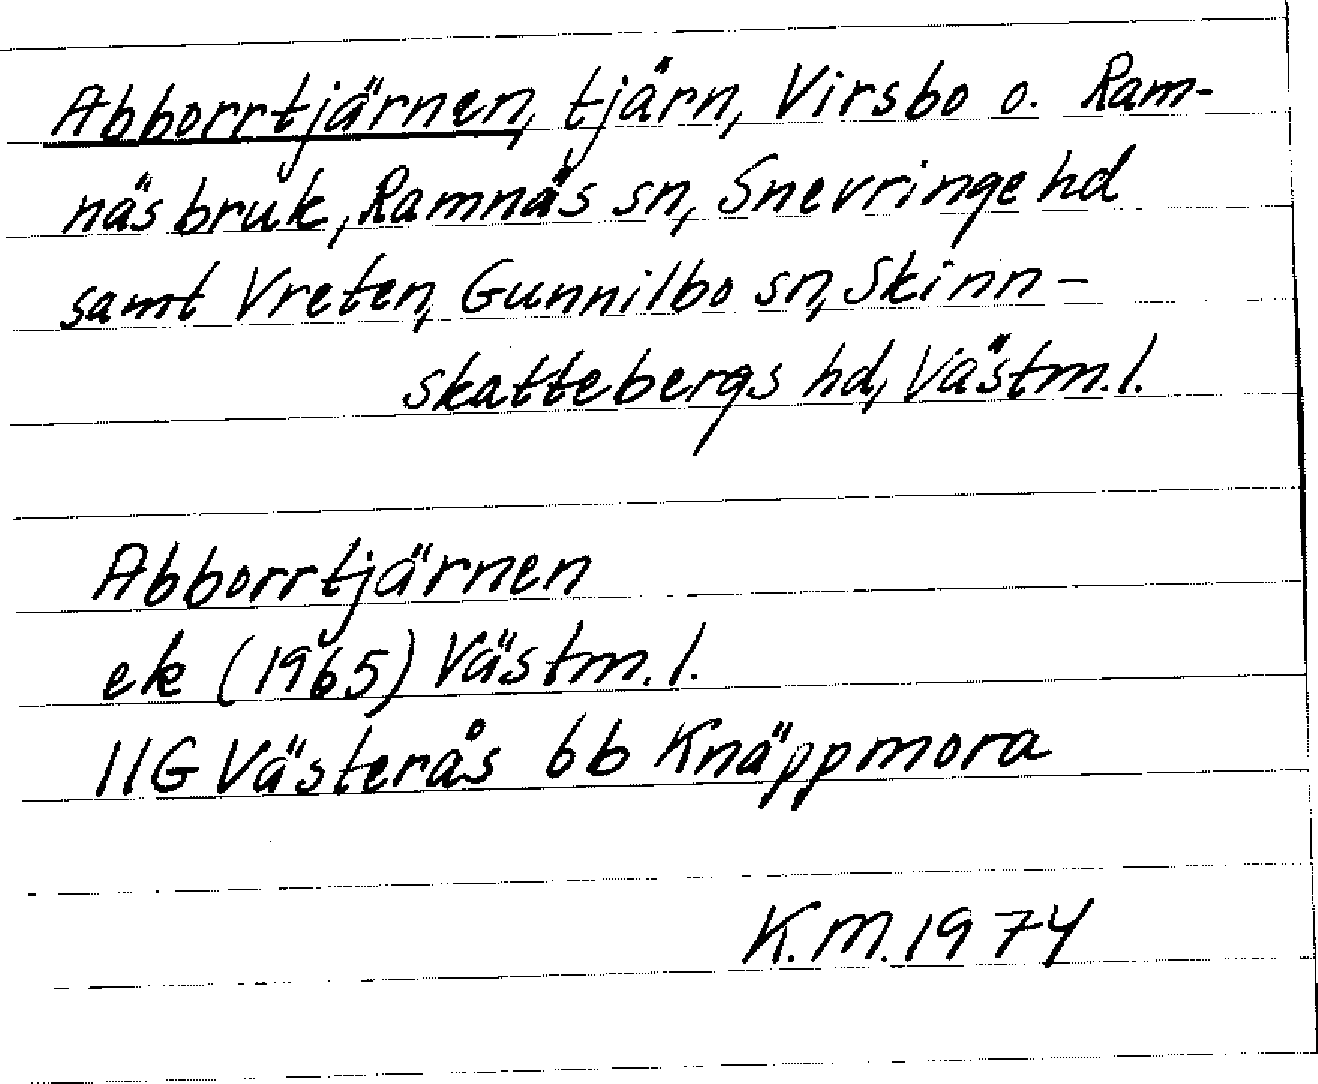 Abborrtjärnen, tjärn, Virsbo o. Ram-
näs bruk, Ramnäs sn, Snevringe hd
samt Vreten, Gunnilbo sn, Skinn-
skattebergs hd, Västm. l.
Abborrtjärnen
ek (1965) Västm. l.
11G Västerås 6b Knäppmora
K.M. 1974